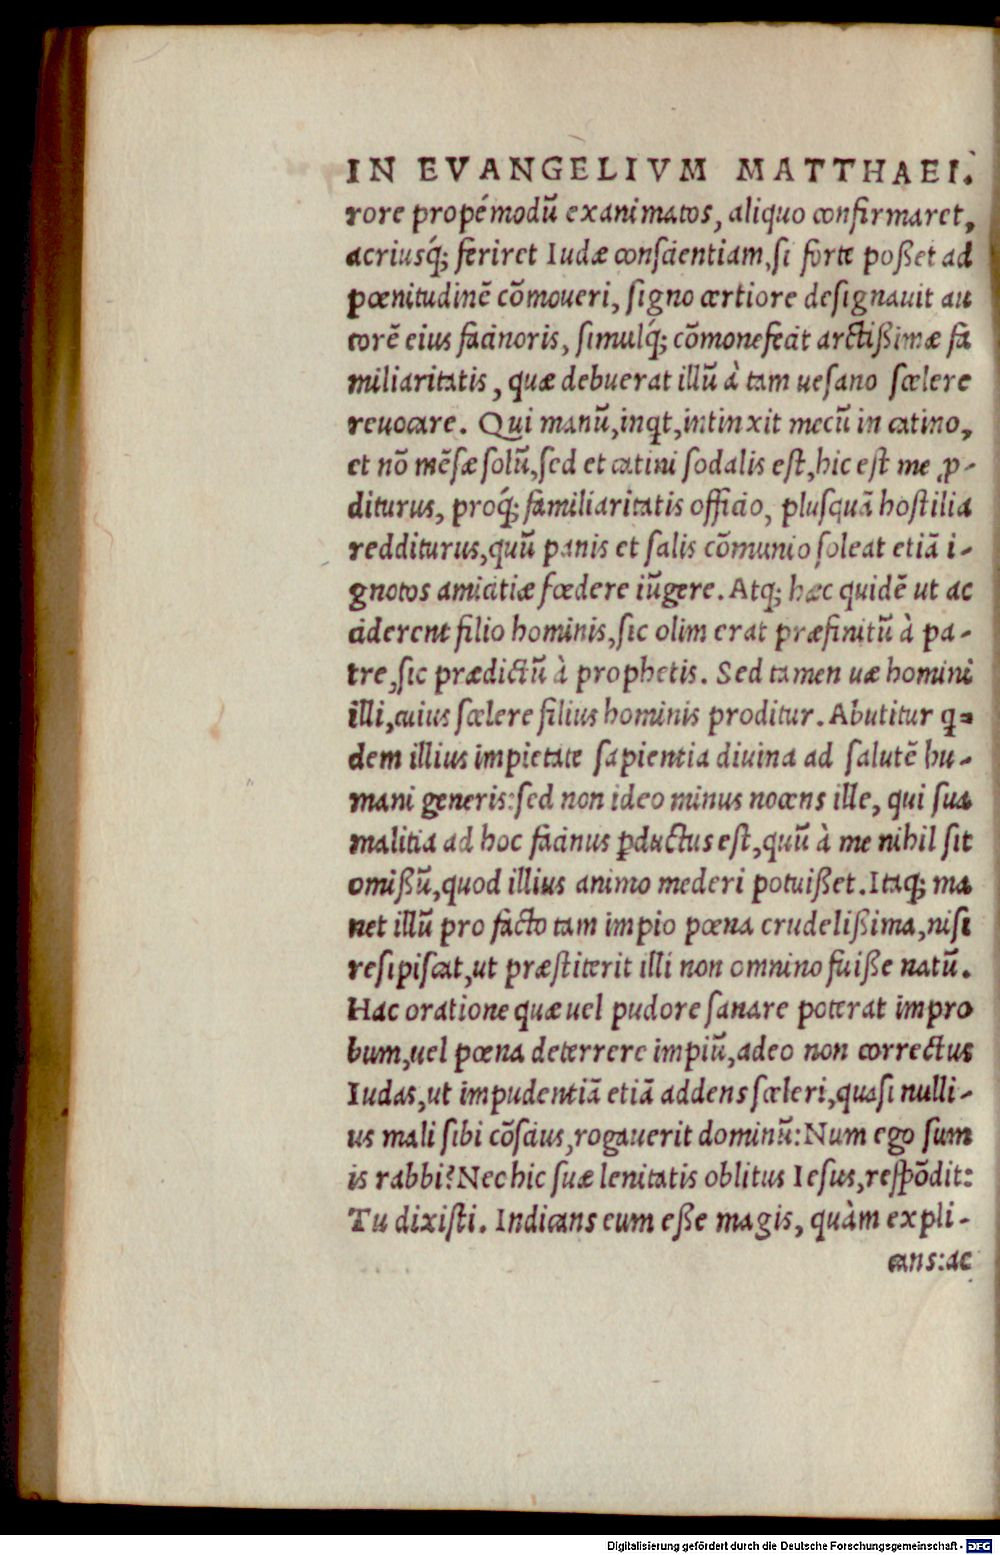 IN EVANGELIVM MATTHAEI.
rore propémodū exanimatos, aliquo confirmaret,
acriusq́; feriret Iudæ conscientiam, si forte poßet ad
pœnitudinē cōmoueri, signo certiore designauit au
torē eius facinoris, simulq́; cōmonefecit arctißimæ fa
miliaritatis, quæ debuerat illū à tam uesano scelere
reuocare. Qui manū, inqt, intinxit mecū in catino,
et nō mēsæ solū, sed et catini sodalis est, hic est me ꝓ-
diturus, proq́; familiaritatis officio, plusquā hostilia
redditurus, quū panis et salis cōmunio soleat etiā i-
gnotos amicitiæ fœdere iūgere. Atq; hæc quidē ut ac
ciderent filio hominis, sic olim erat præfinitū à pa-
tre, sic prædictū à prophetis. Sed tamen uæ homini
illi, cuius scelere filius hominis proditur. Abutitur q-
dem illius impietate sapientia diuina ad salutē hu-
mani generis: sed non ideo minus nocens ille, qui sua
malitia ad hoc facinus ꝑductus est, quū à me nihil sit
omißū, quod illius animo mederi potuißet. Itaq; ma
net illū pro facto tam impio pœna crudelißima, nisi
resipiscat, ut præstiterit illi non omnino fuiße natū.
Hac oratione quæ uel pudore sanare poterat impro
bum, uel pœna deterrere impiū, adeo non correctus
Iudas, ut impudentiā etiā addens sceleri, quasi nulli-
us mali sibi cōscius, rogauerit dominū: Num ego sum
is rabbi? Nec hic suæ lenitatis oblitus Iesus, respōdit:
Tu dixisti. Indicans eum eße magis, quàm expli-
cans: ac
Digitalisierung gefördert durch die Deutsche Forschungsgemeinschaft - DFG